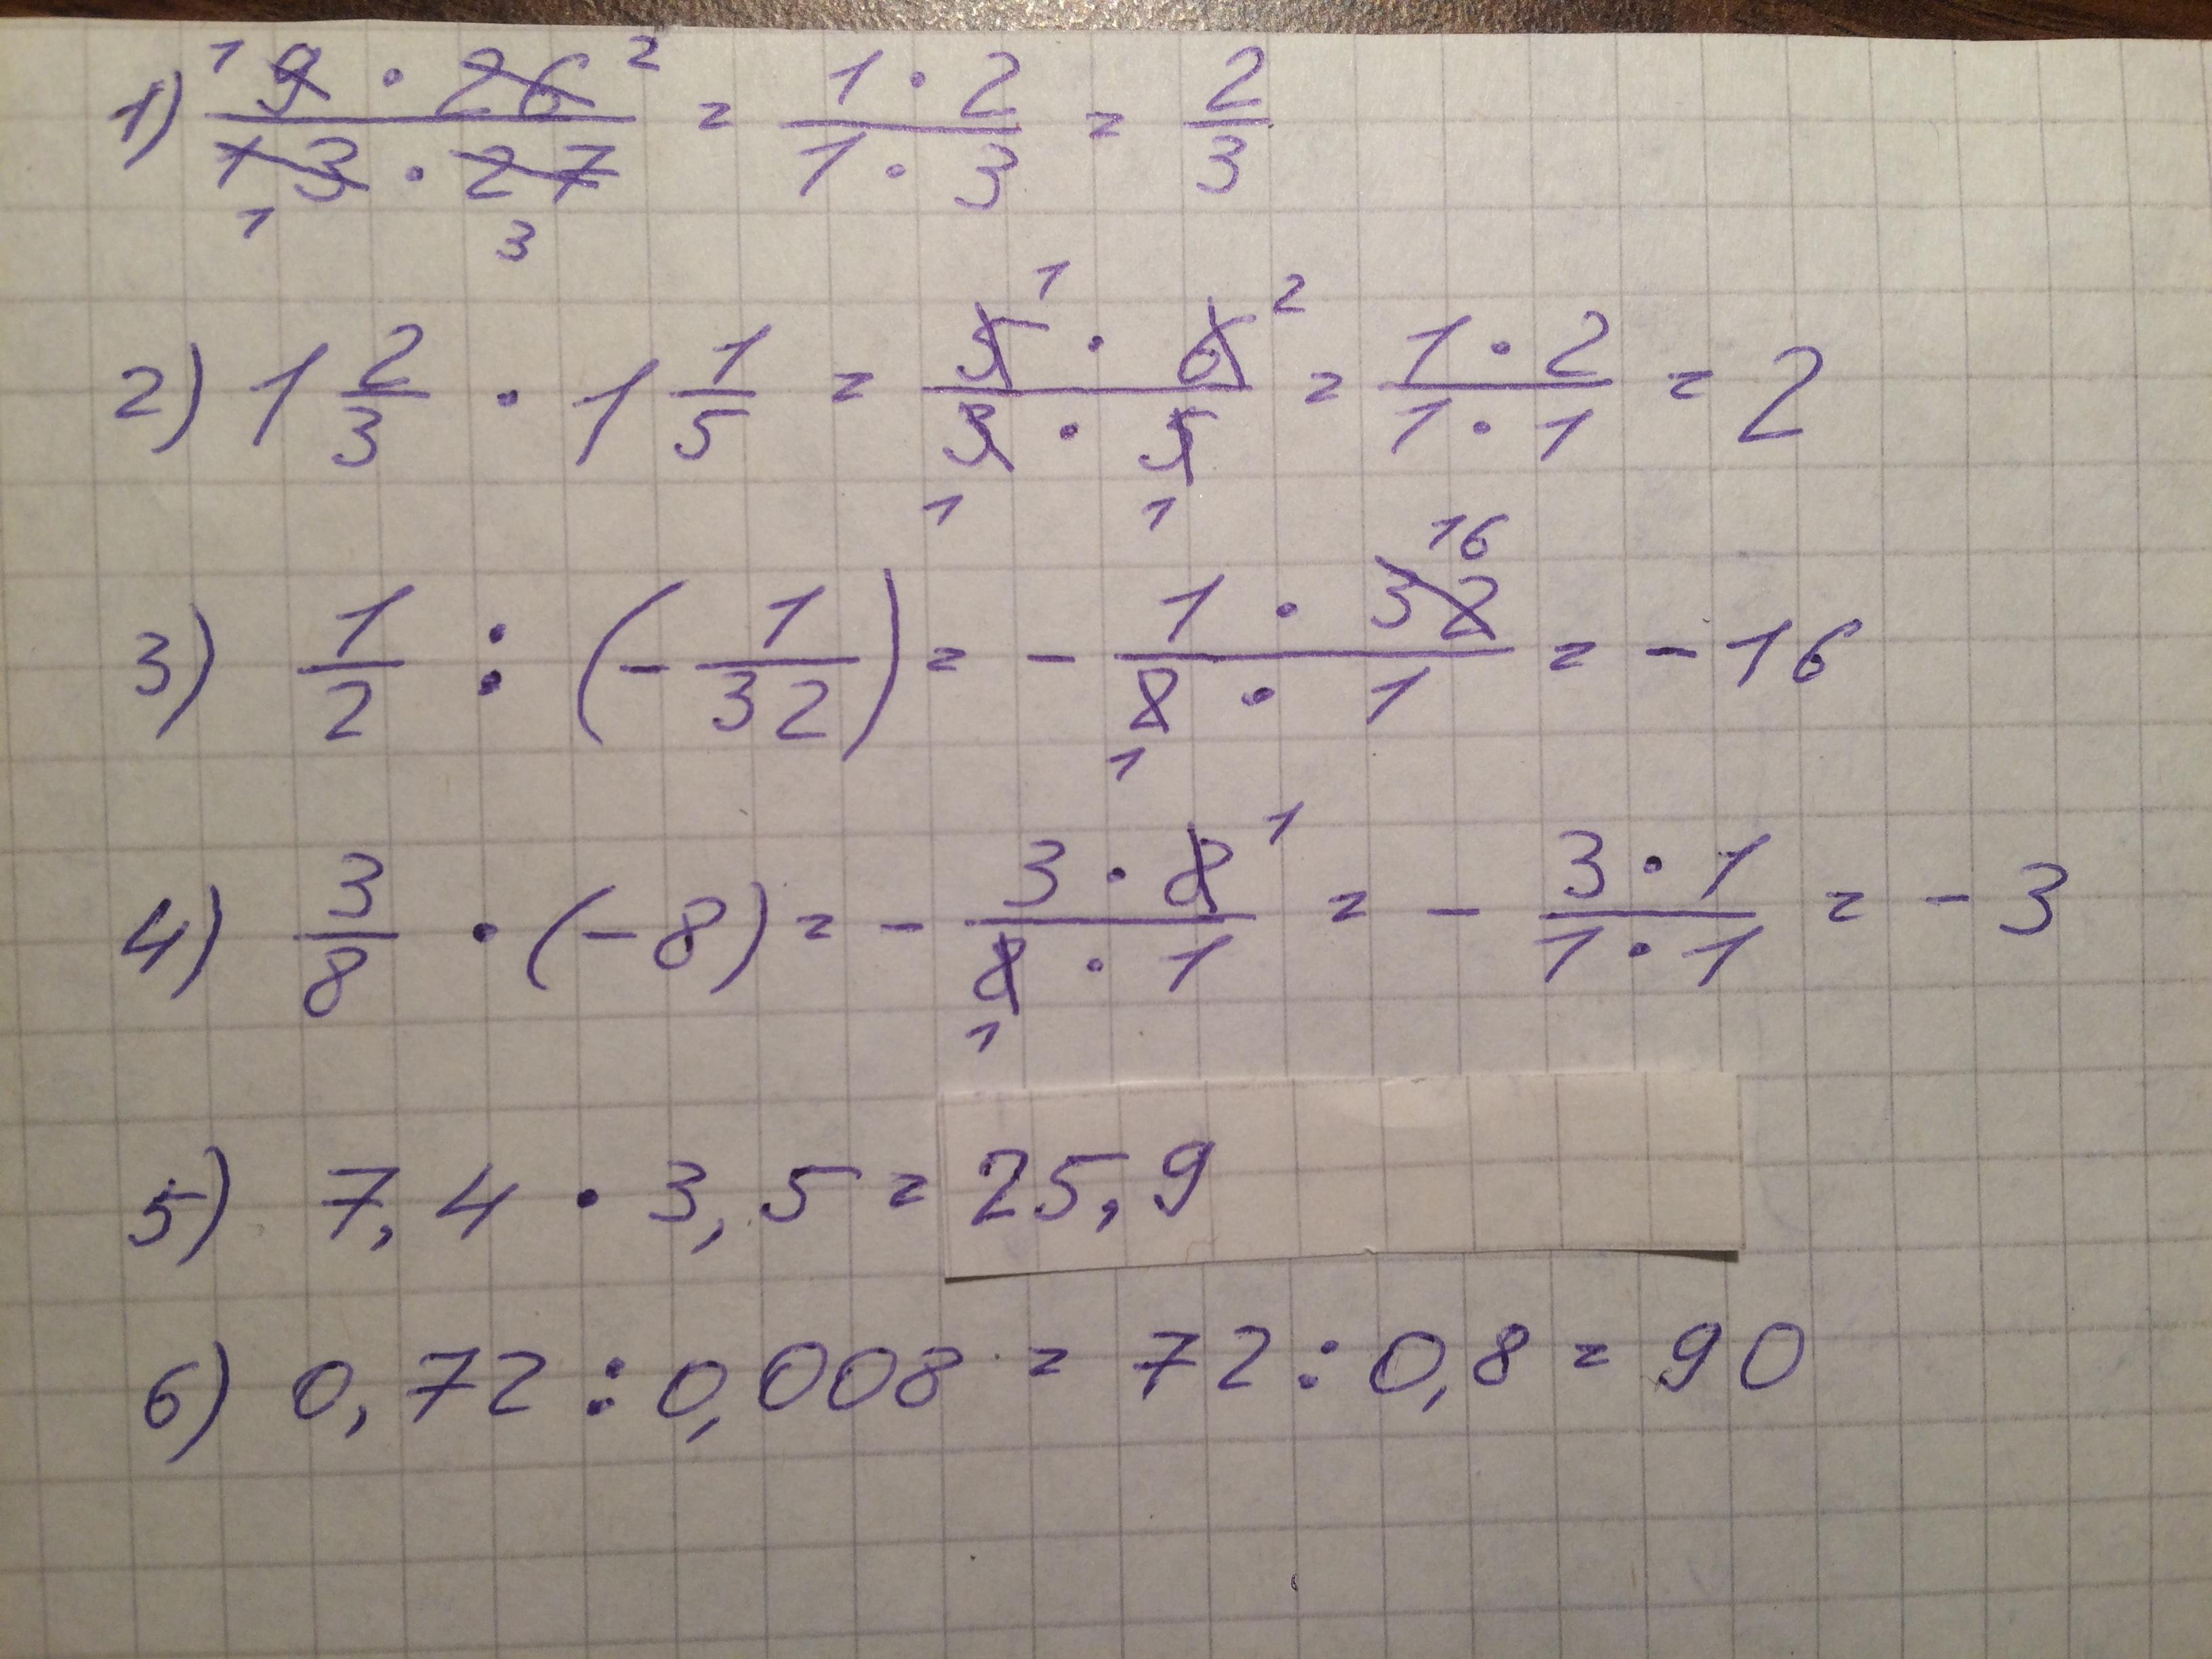 1) (9 · 26)/(13 · 27) = (1 · 2)/(1 · 3) = 2/3
2) 1 2/3 · 1 1/5 = (5 · 6)/(3 · 5) = (1 · 2)/(1 · 1) = 2
3) 1/2 : (- 1/32) = - (1 · 32)/(2 · 1) = - 16
4) 3/8 · (-8) = - (3 · 8)/(8 · 1) = - (3 · 1)/(1 · 1) = - 3
5) 7,4 · 3,5 = 25,9
6) 0,72 : 0,008 = 72 : 0,8 = 90